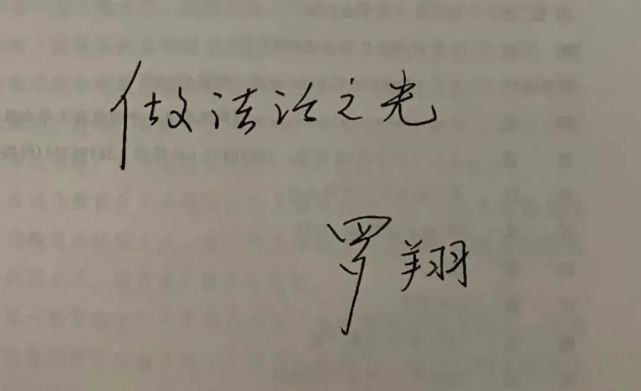 做法治之光
罗翔